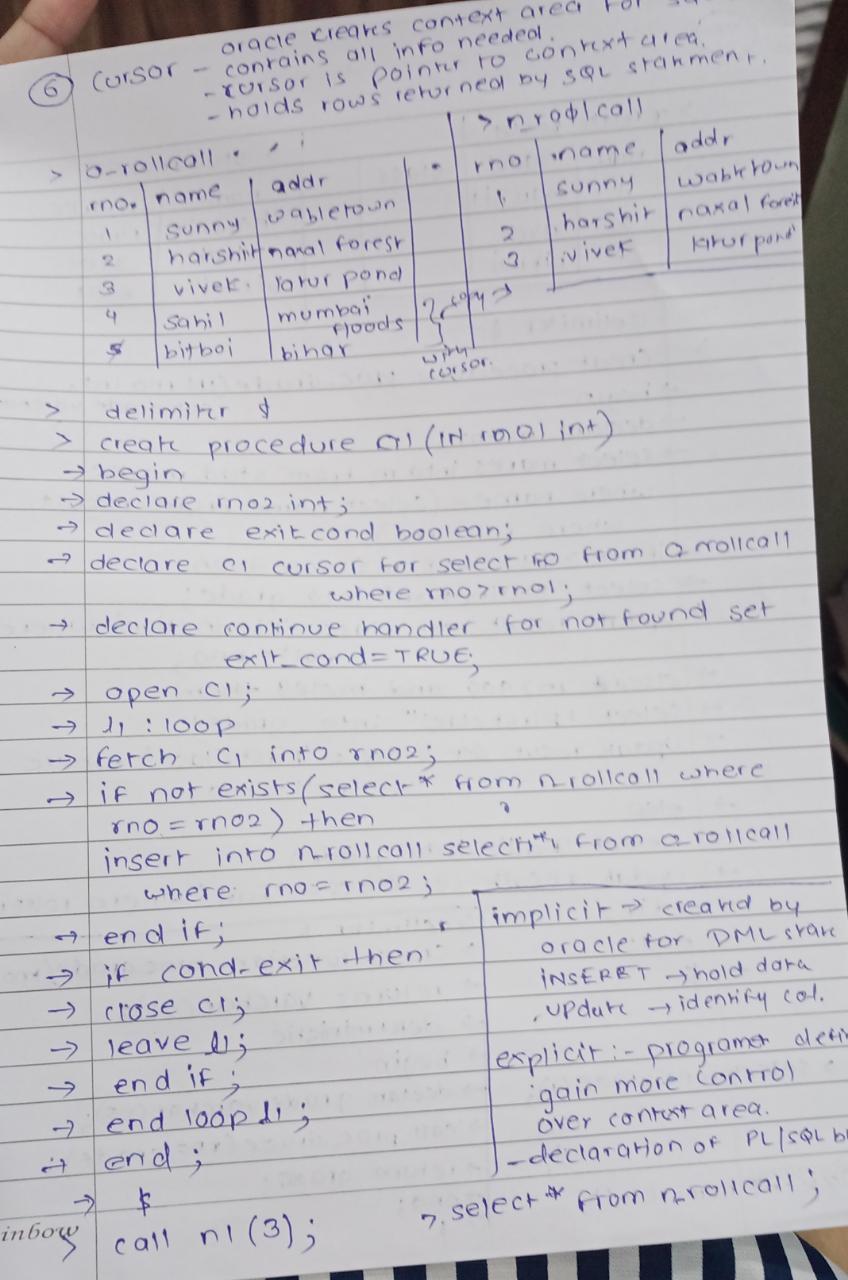 oracle creates context area for
⑥ cursor - contains all info needed.
- cursor is pointer to context area.
- holds rows returned by SQL statement.
> o-rollcall
rno. name addr
1 sunny wabletown
2 harshit naxal forest
3 vivek latur pond
4 sahil mumbai floods
5 bitboi bihar
} copy →
with cursor.
> n_rollcall
rno name addr
1 sunny wabletown
2 harshit naxal forest
3 vivek latur pond
> delimiter $
> create procedure n1 (IN rno1 int)
→ begin
→ declare rno2 int;
→ declare exit cond boolean;
→ declare c1 cursor for select rno from o_rollcall
where rno>rno1;
→ declare continue handler for not found set
exit_cond=TRUE;
→ open c1;
→ l1 : loop
→ fetch c1 into rno2;
→ if not exists(select * from n_rollcall where
rno = rno2) then
insert into n_rollcall select * from o_rollcall
where rno = rno2;
→ end if;
→ if cond-exit then
→ close c1;
→ leave l1;
→ end if;
→ end loop l1;
→ end;
→ $
call n1 (3);
implicit → created by
oracle for DML state
INSERET → hold data
update → identify col.
explicit :- programer defin
gain more control
over context area.
- declaration of PL/SQL b
> select * from n_rollcall;
inbow